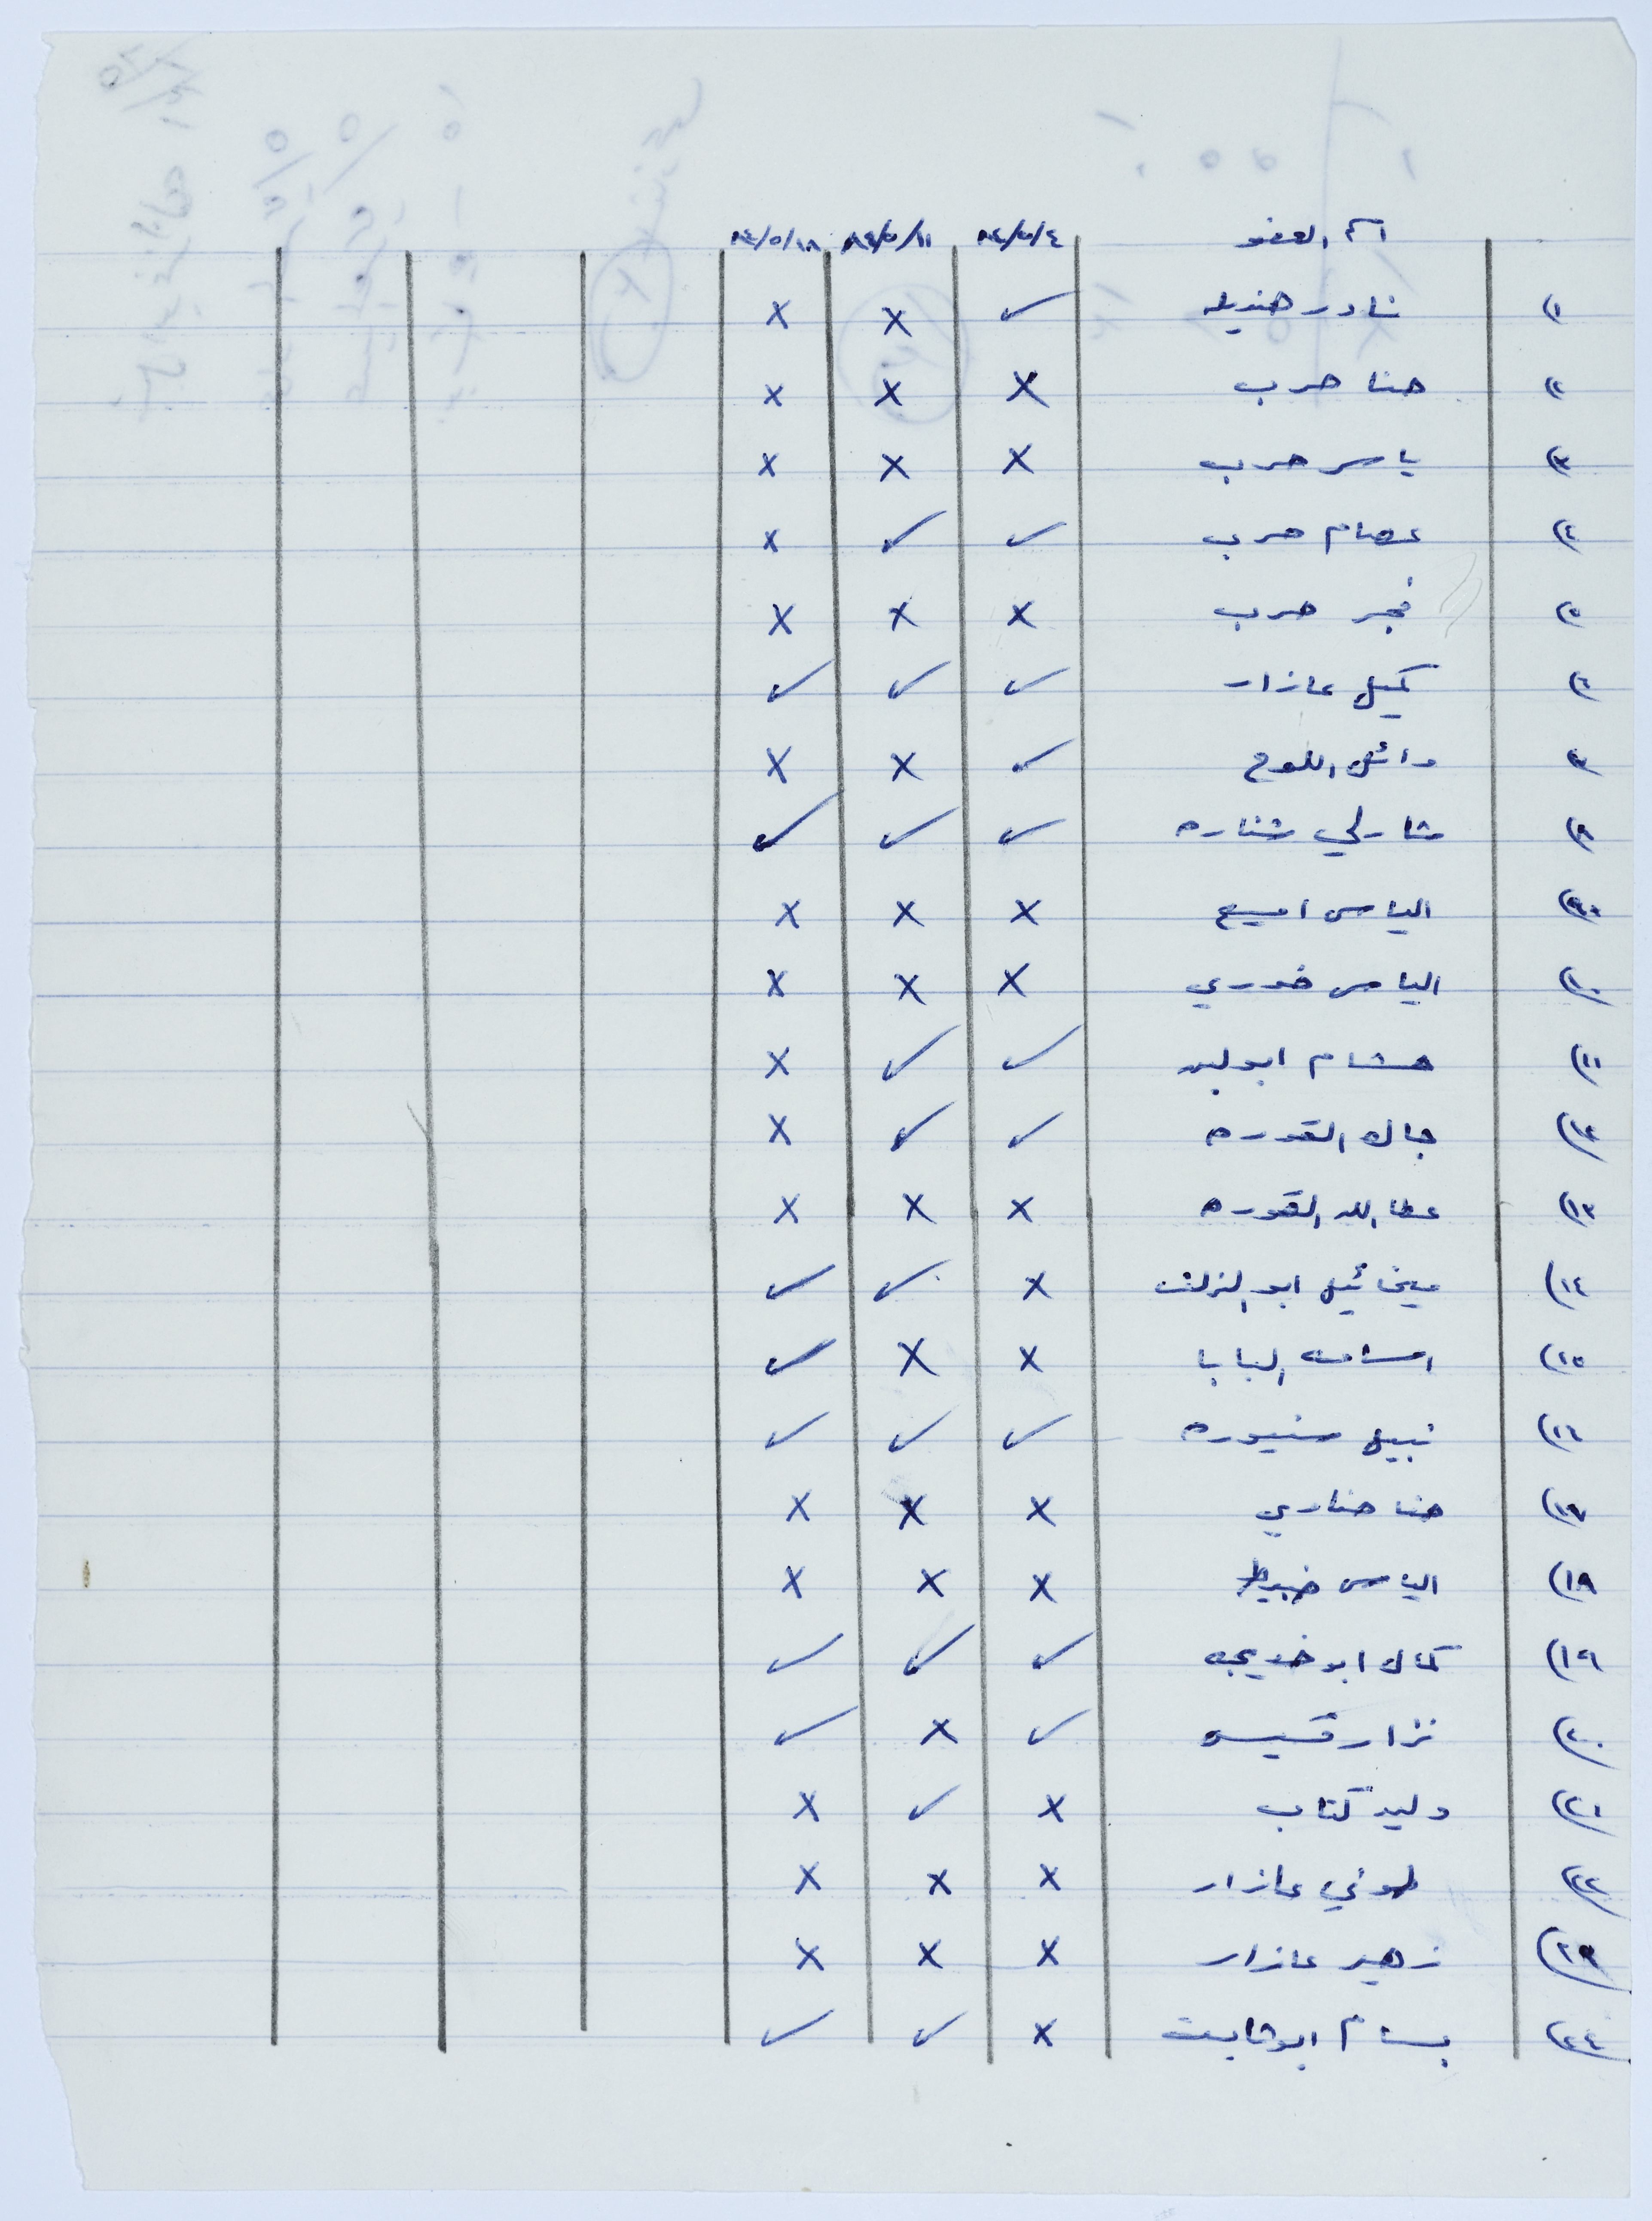 اسم العضو ٨٤/٥/٤ ٨٤/٥/١١ ٨٤/٥/١٨
(١ نادر هنديله ✓ X X
(٢ حنا حرب X X X
(٣ ياسر حرب X X X
(٤ عصام حرب ✓ ✓ X
(٥ فجر حرب X X X
(٦ كميل عازار ✓ ✓ ✓
(٧ وائل اللوح ✓ X X
(٨ شارلي شناره ✓ ✓ ✓
(٩ الياس اميع X X X
(١٠ الياس خوري X X X
(١١ هشام ابولبد ✓ ✓ X
(١٢ جاك القوره ✓ ✓ X
(١٣ عطا الله القوره X X X
(١٤ ميخائيل ابو الزلف X ✓ ✓
(١٥ اسامه البابا X X ✓
(١٦ نبيل سنيوره ✓ ✓ ✓
(١٧ حنا حناري X X X
(١٨ الياس ضبيط X X X
(١٩ كمال ابو خديجه ✓ ✓ ✓
(٢٠ نزار قسيس ✓ X ✓
(٢١ وليد كتاب X ✓ X
(٢٢ طوني عازار X X X
(٢٣ زهير عازار X X X
(٢٤ بسام ابو ثابت X ✓ ✓